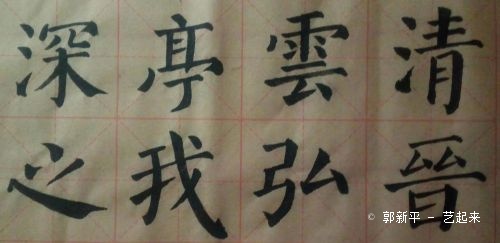 清晉
雲弘
亭我
深之
© 郭新平 - 艺起来